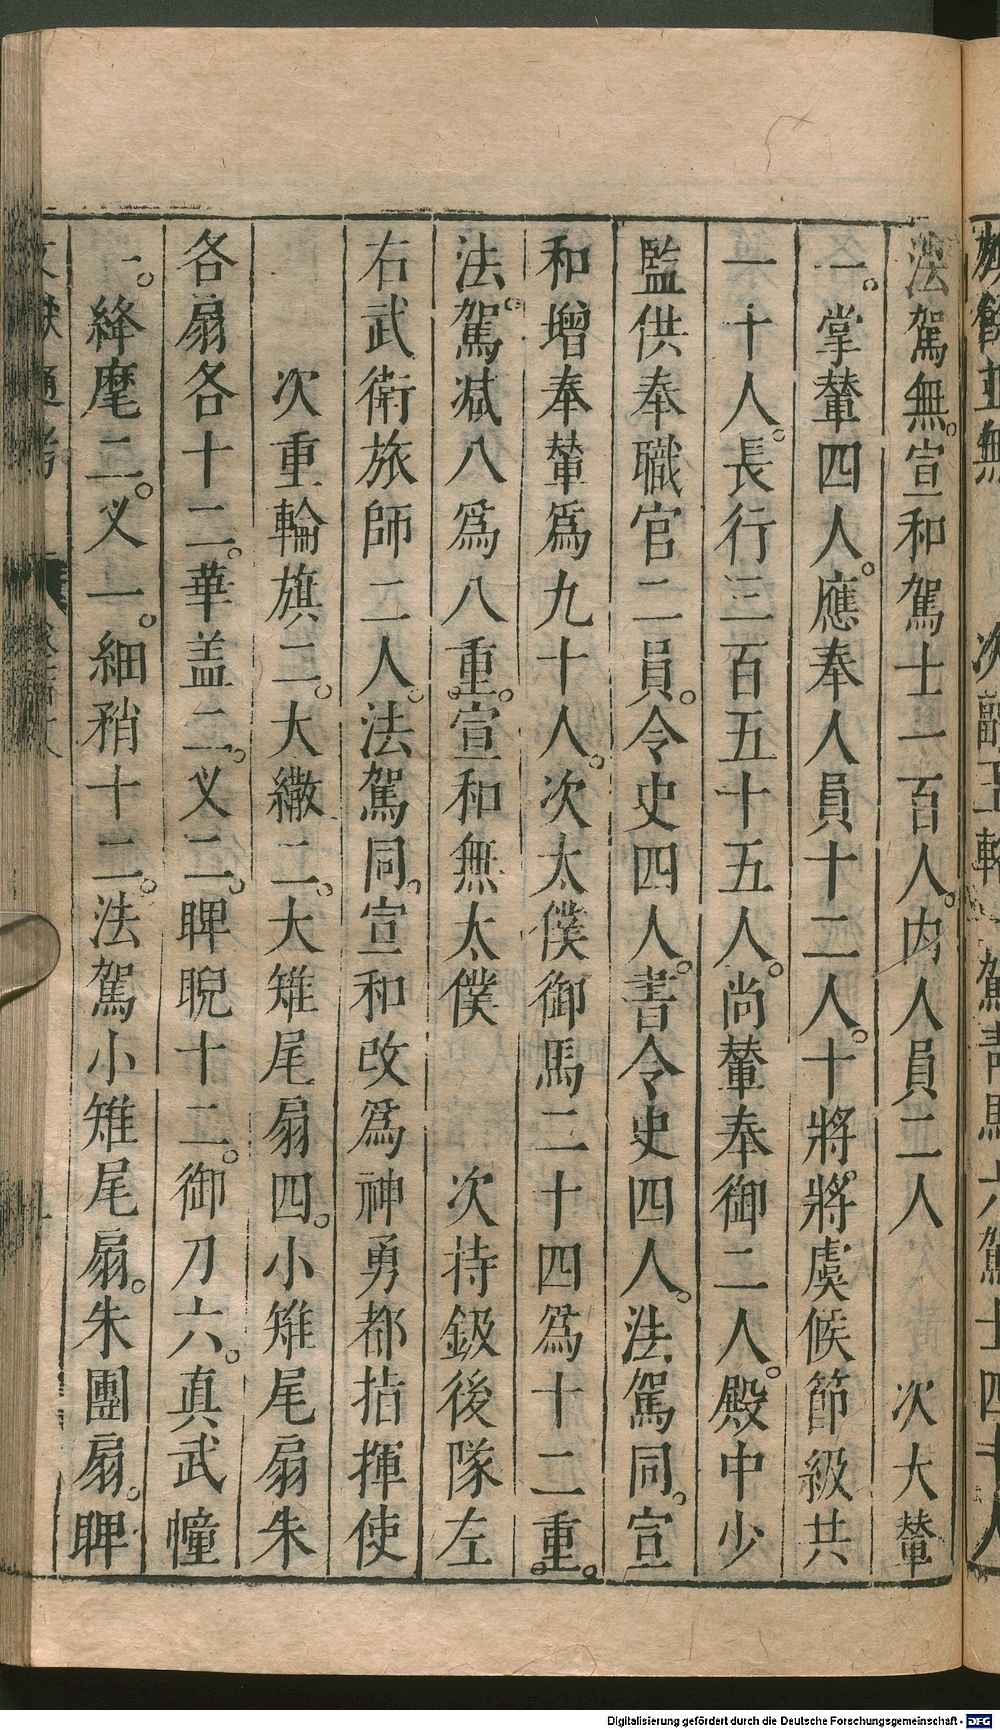 法駕無。宣和駕士一百人。内人員二人　次大輦
一。掌輦四人。應奉人員十二人。十將。將虞候節級共
一十人。長行三百五十五人。尚輦奉御二人。殿中少
監供奉職官二員。令史四人。書令史四人。法駕同。宣
和增奉輦爲九十人。次太僕御馬二十四爲十二重。
法駕。减八爲八重。宣和無太僕　次持鈒後隊左
右武衛旅師二人。法駕同。宣和改爲神勇都指揮使
次重輪旗二。大繖二。大雉尾扇四。小雉尾扇朱
各扇各十二。華盖二。义二。睥睨十二。御刀六。真武幢
一。絳麾二。义一。細矟十二。法駕小雉尾扇。朱團扇。睥